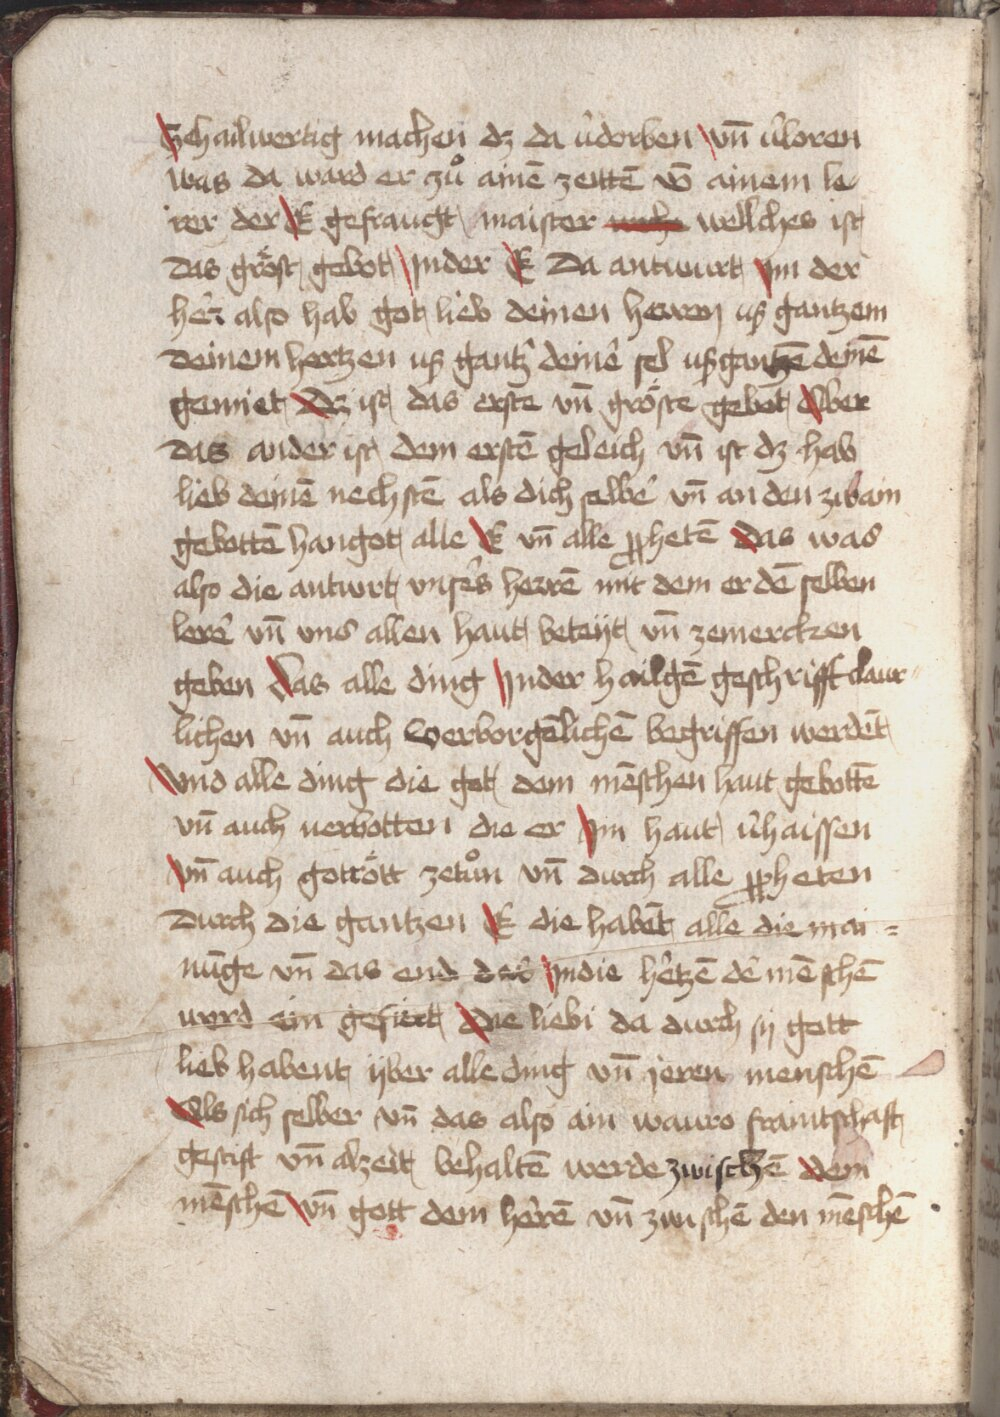 Gehailwertig machen dz da v̂dorben vn̄ v̂loren
was da ward er zů ainē zeittē vō ainem le
rer der E gefraugt maister welches ist
das gröst gebot Inder E Da antwurt Im der
her also hab got lieb deinen herren uß gantzem
deinem hertzen uß gantz̑ deinē sel uß gantzē deinē
gemiet Dz ist das erste vn̄ gröste gebot Aber
das ander ist dem erstē geleich vn̄ ist dz hab
lieb deinē nechstē als dich selbeȓ vn̄ an den zwain
gebottē hangot alle E vn̄ alle ꝓphetē Das was
also die antwurt vnsers̑ herrē mit dem er dē selben
lereȓ vn̄ vns allen haut beteÿt vn̄ zemercken
geben Das alle ding Inder hailgē geschrifft claur-
lichen vn̄ auch verborgēlichē begriffen werdēt
Vnd alle ding die got dem mēschen haut gebottē
vn̄ auch verbotten die er Im haut v̂haissen
Vn̄ auch gotrött zetůn vn̄ durch alle ꝓpheten
Durch die gantzen E die habēt alle die mai=
nūge vn̄ das end deȓ Indie hetzē dȇ mēschē
wyrd ein gefiert Die liebi da durch sÿ gott
lieb habent ÿber alle ding vn̄ jeren menschē
Als sich selber vn̄ das also ain wauro fraintschaft
gestift vn̄ alzeit behaltē werde zwischē dem
mēschē Vn̄ gott dem herē vn̄ zwischē den mēschē